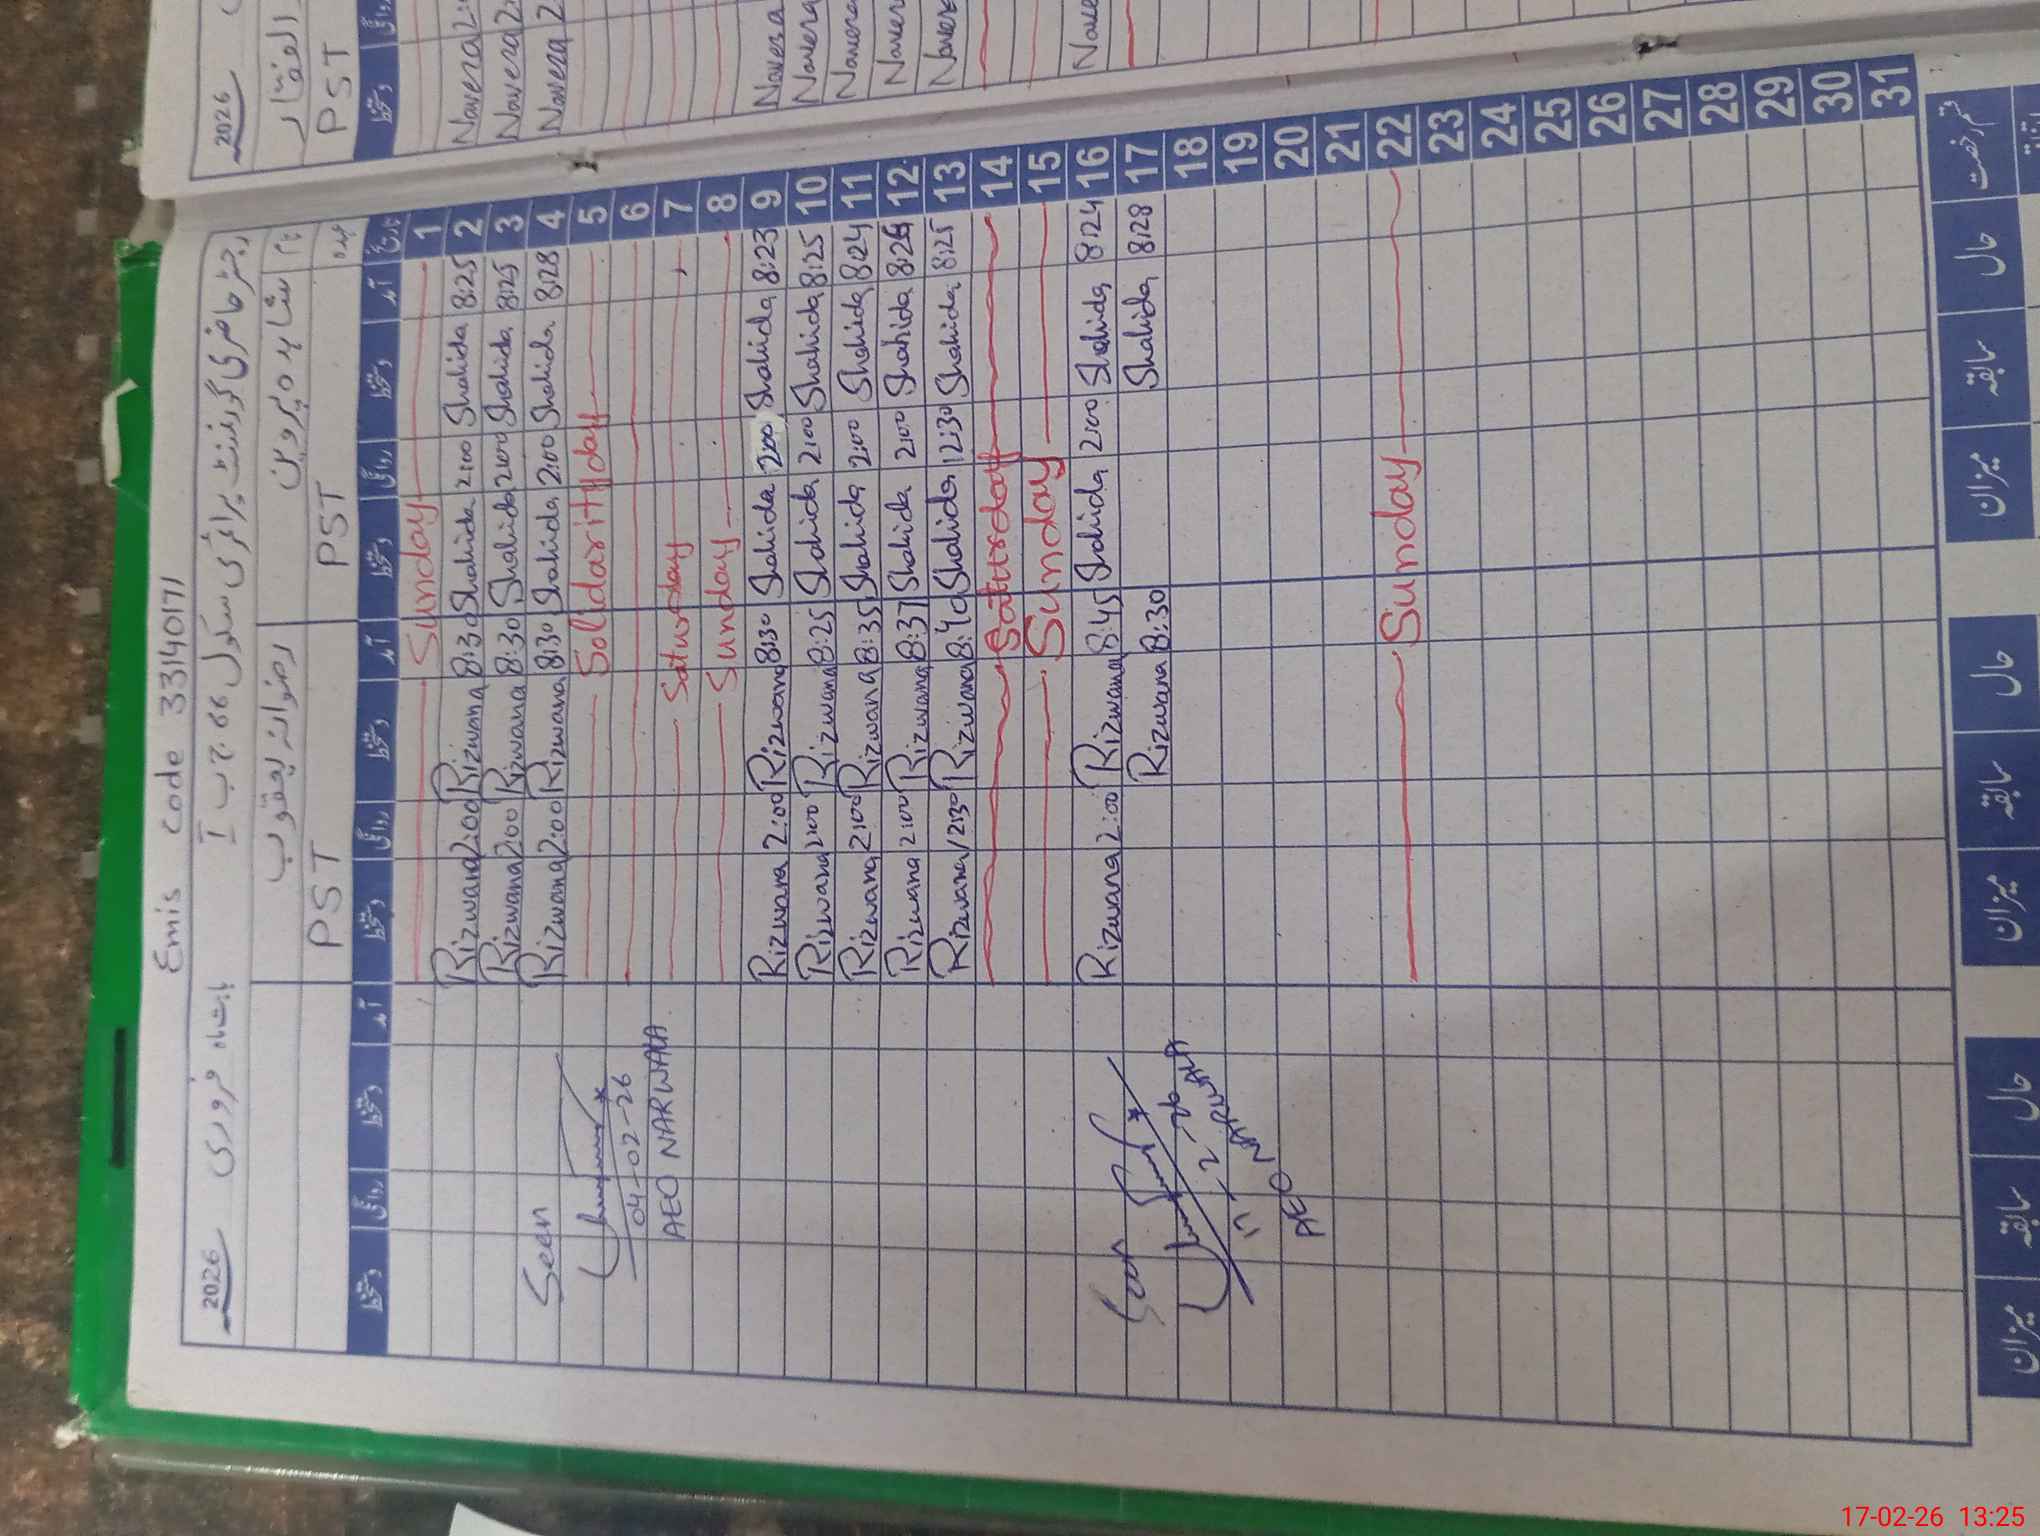 Emis code 33140171
رجسٹر حاضری گورنمنٹ پرائمری سکول 66 ج ب I بابت ماہ فروری 2026
نام شاہدہ پروین رضوانہ یعقوب
عہدہ PST PST
تاریخ آمد دستخط روانگی دستخط آمد دستخط روانگی دستخط آمد دستخط روانگی دستخط
1 Sunday
2 8:25 Shahida 2:00 Shahida 8:30 Rizwana 2:00 Rizwana
3 8:25 Shahida 2:00 Shahida 8:30 Rizwana 2:00 Rizwana
4 8:28 Shahida 2:00 Shahida 8:30 Rizwana 2:00 Rizwana
5 Solidarity day
6
7 Saturday
8 Sunday
9 8:23 Shahida 2:00 Shahida 8:30 Rizwana 2:00 Rizwana
10 8:25 Shahida 2:00 Shahida 8:25 Rizwana 2:00 Rizwana
11 8:24 Shahida 2:00 Shahida 8:35 Rizwana 2:00 Rizwana
12 8:26 Shahida 2:00 Shahida 8:37 Rizwana 2:00 Rizwana
13 8:25 Shahida 12:30 Shahida 8:40 Rizwana 12:30 Rizwana
14 Saturday
15 Sunday
16 8:24 Shahida 2:00 Shahida 8:45 Rizwana 2:00 Rizwana
17 8:28 Shahida 8:30 Rizwana
18
19
20
21
22 Sunday
23
24
25
26
27
28
29
30
31
Seen
04-02-26
AEO NARWALA
Seen
17-2-26
AEO NARWALA
قسم رخصت حال سابقہ میزان حال سابقہ میزان حال سابقہ میزان
2026
الغفار
PST
دستخط روانگی
Navera 2:
Navera 2:
Navera 2
Navera
Navera
Navera
Navera
Navera
Nave
17-02-26 13:25